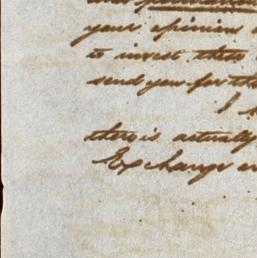 your opinion
to invest this
send you for the
I
there is actually
Exchange